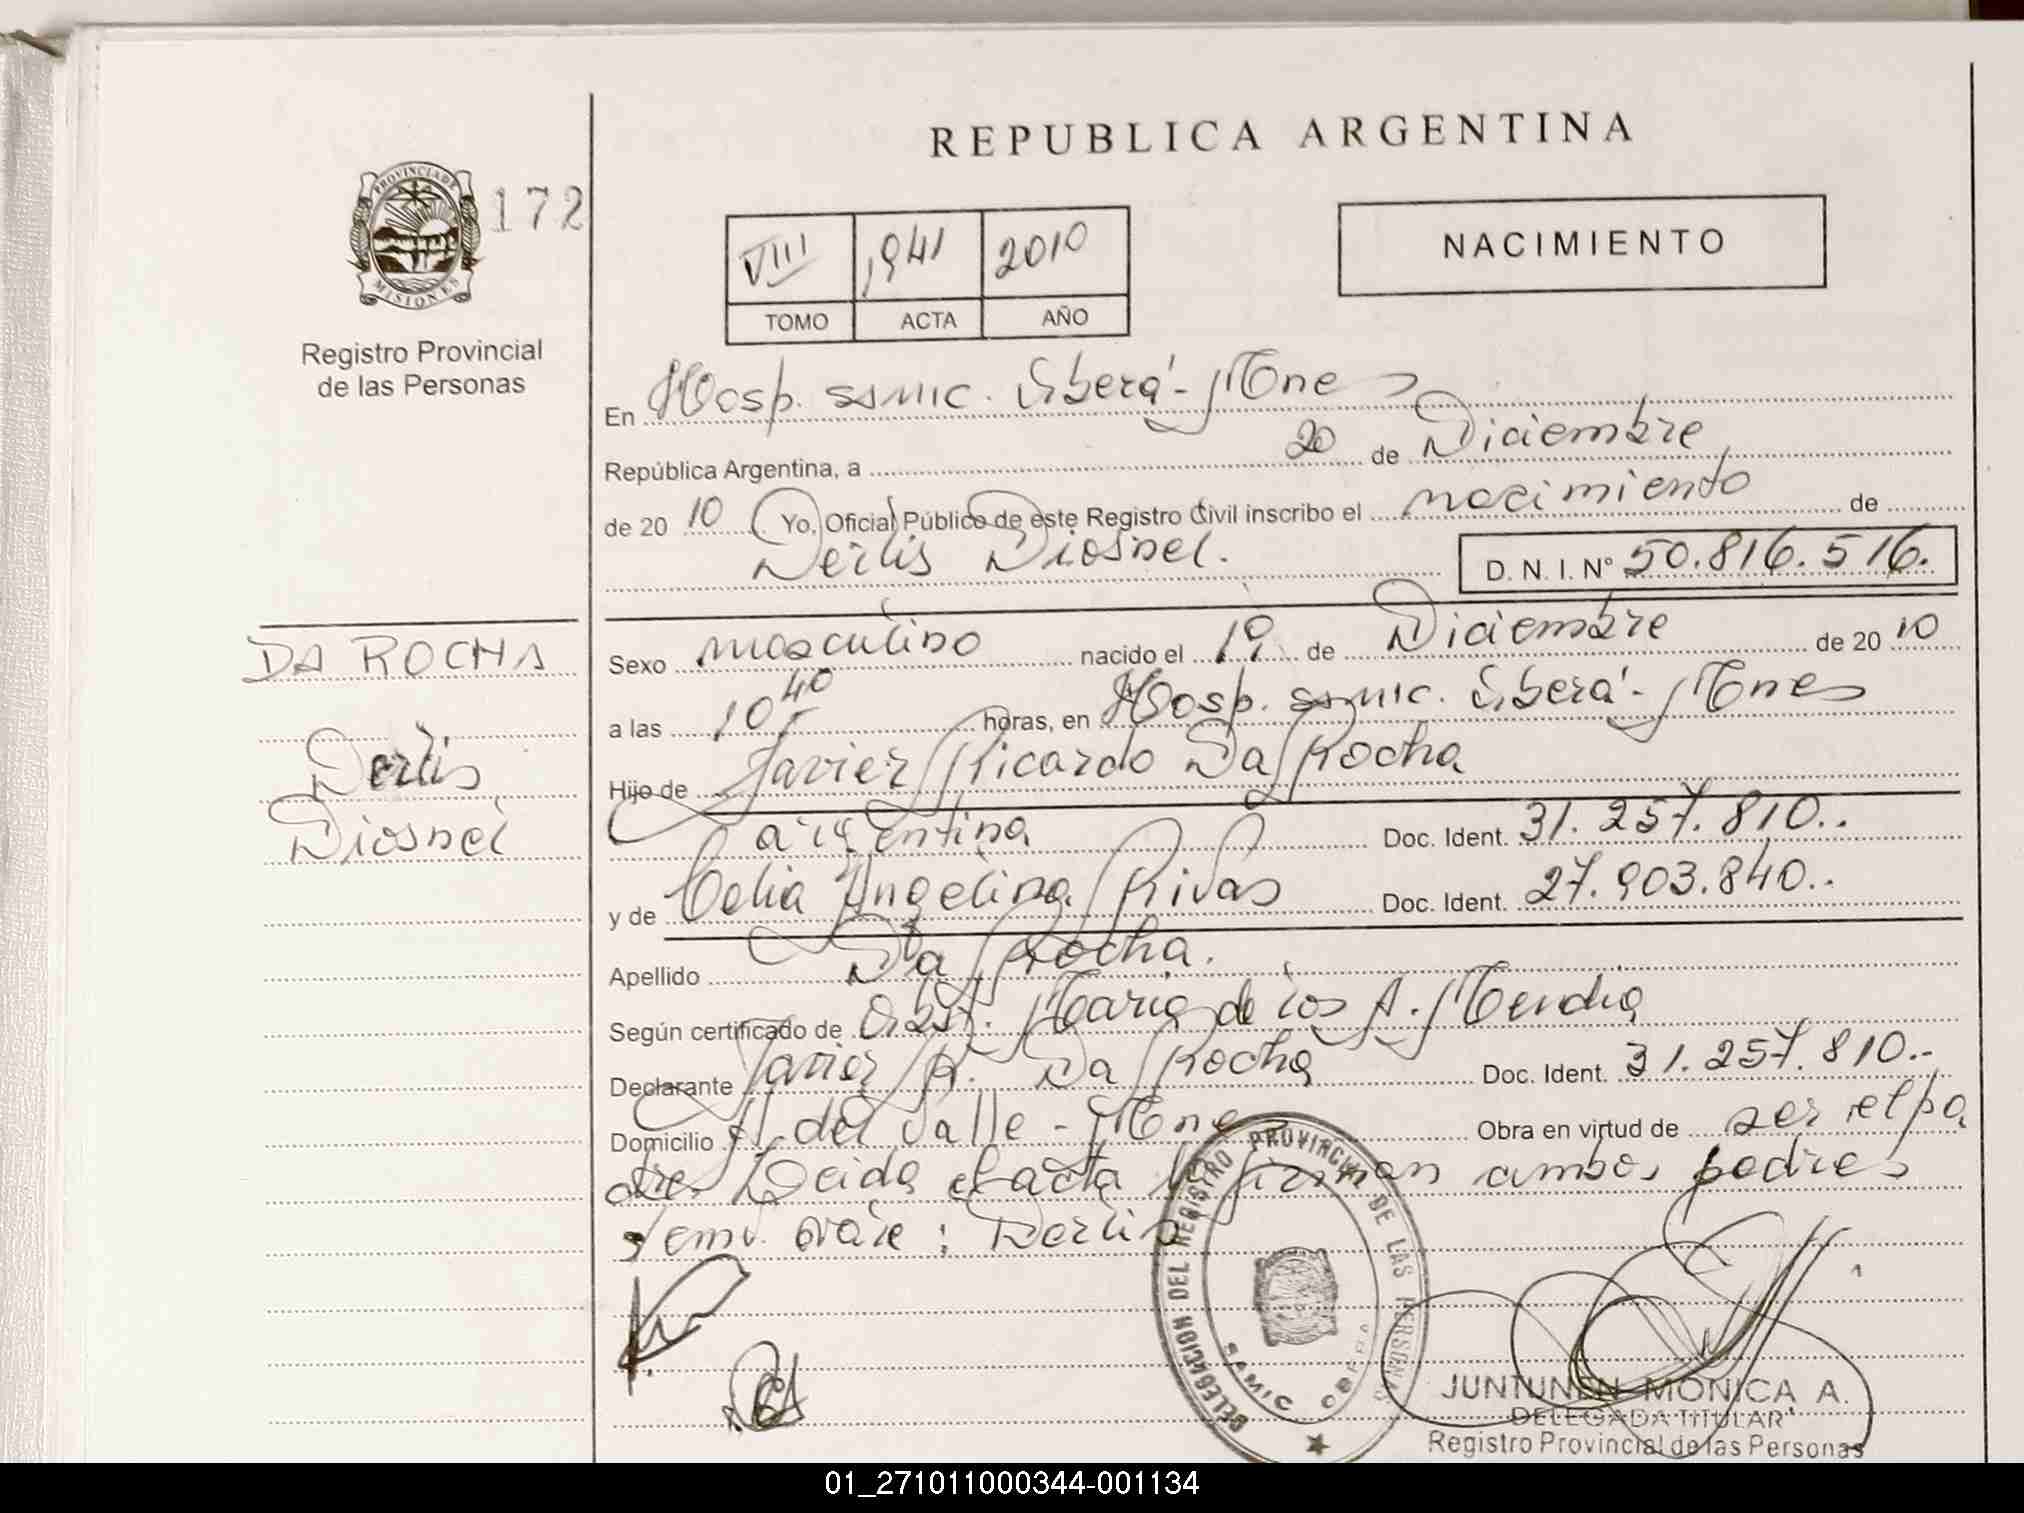 REPUBLICA ARGENTINA
PROVINCIA DE
MISIONES
172
Registro Provincial
de las Personas
VIII 1941 2010
TOMO ACTA AÑO
NACIMIENTO
En Hosp. SAMIC. Oberá - Mnes
República Argentina, a 20 de Diciembre
de 20 10 Yo, Oficial Público de este Registro Civil inscribo el nacimiento de
Derlis Diosnel. D. N. I. Nº 50.816.516.
DA ROCHA
Derlis
Diosnel
Sexo masculino nacido el 19 de Diciembre de 20 10
a las 10 40 horas, en Hosp. SAMIC. Oberá - Mnes
Hijo de Javier Ricardo Da Rocha
argentina Doc. Ident. 31.257.810..
y de Celia Angelina Rivas Doc. Ident. 27.903.840..
Apellido Da Rocha.
Según certificado de Obst. Maria de los A.
Declarante Javier R. Da Rocha Doc. Ident. 31.257.810..
Domicilio A. del Valle - Mnes Obra en virtud de ser el pa
dre. Leida el acta la firman ambos padres
Derlis
DELEGACION DEL REGISTRO PROVINCIAL DE LAS PERSONAS
SAMIC OBERA
JUNTUNEN MONICA A.
DELEGADA TITULAR
Registro Provincial de las Personas
01_271011000344-001134